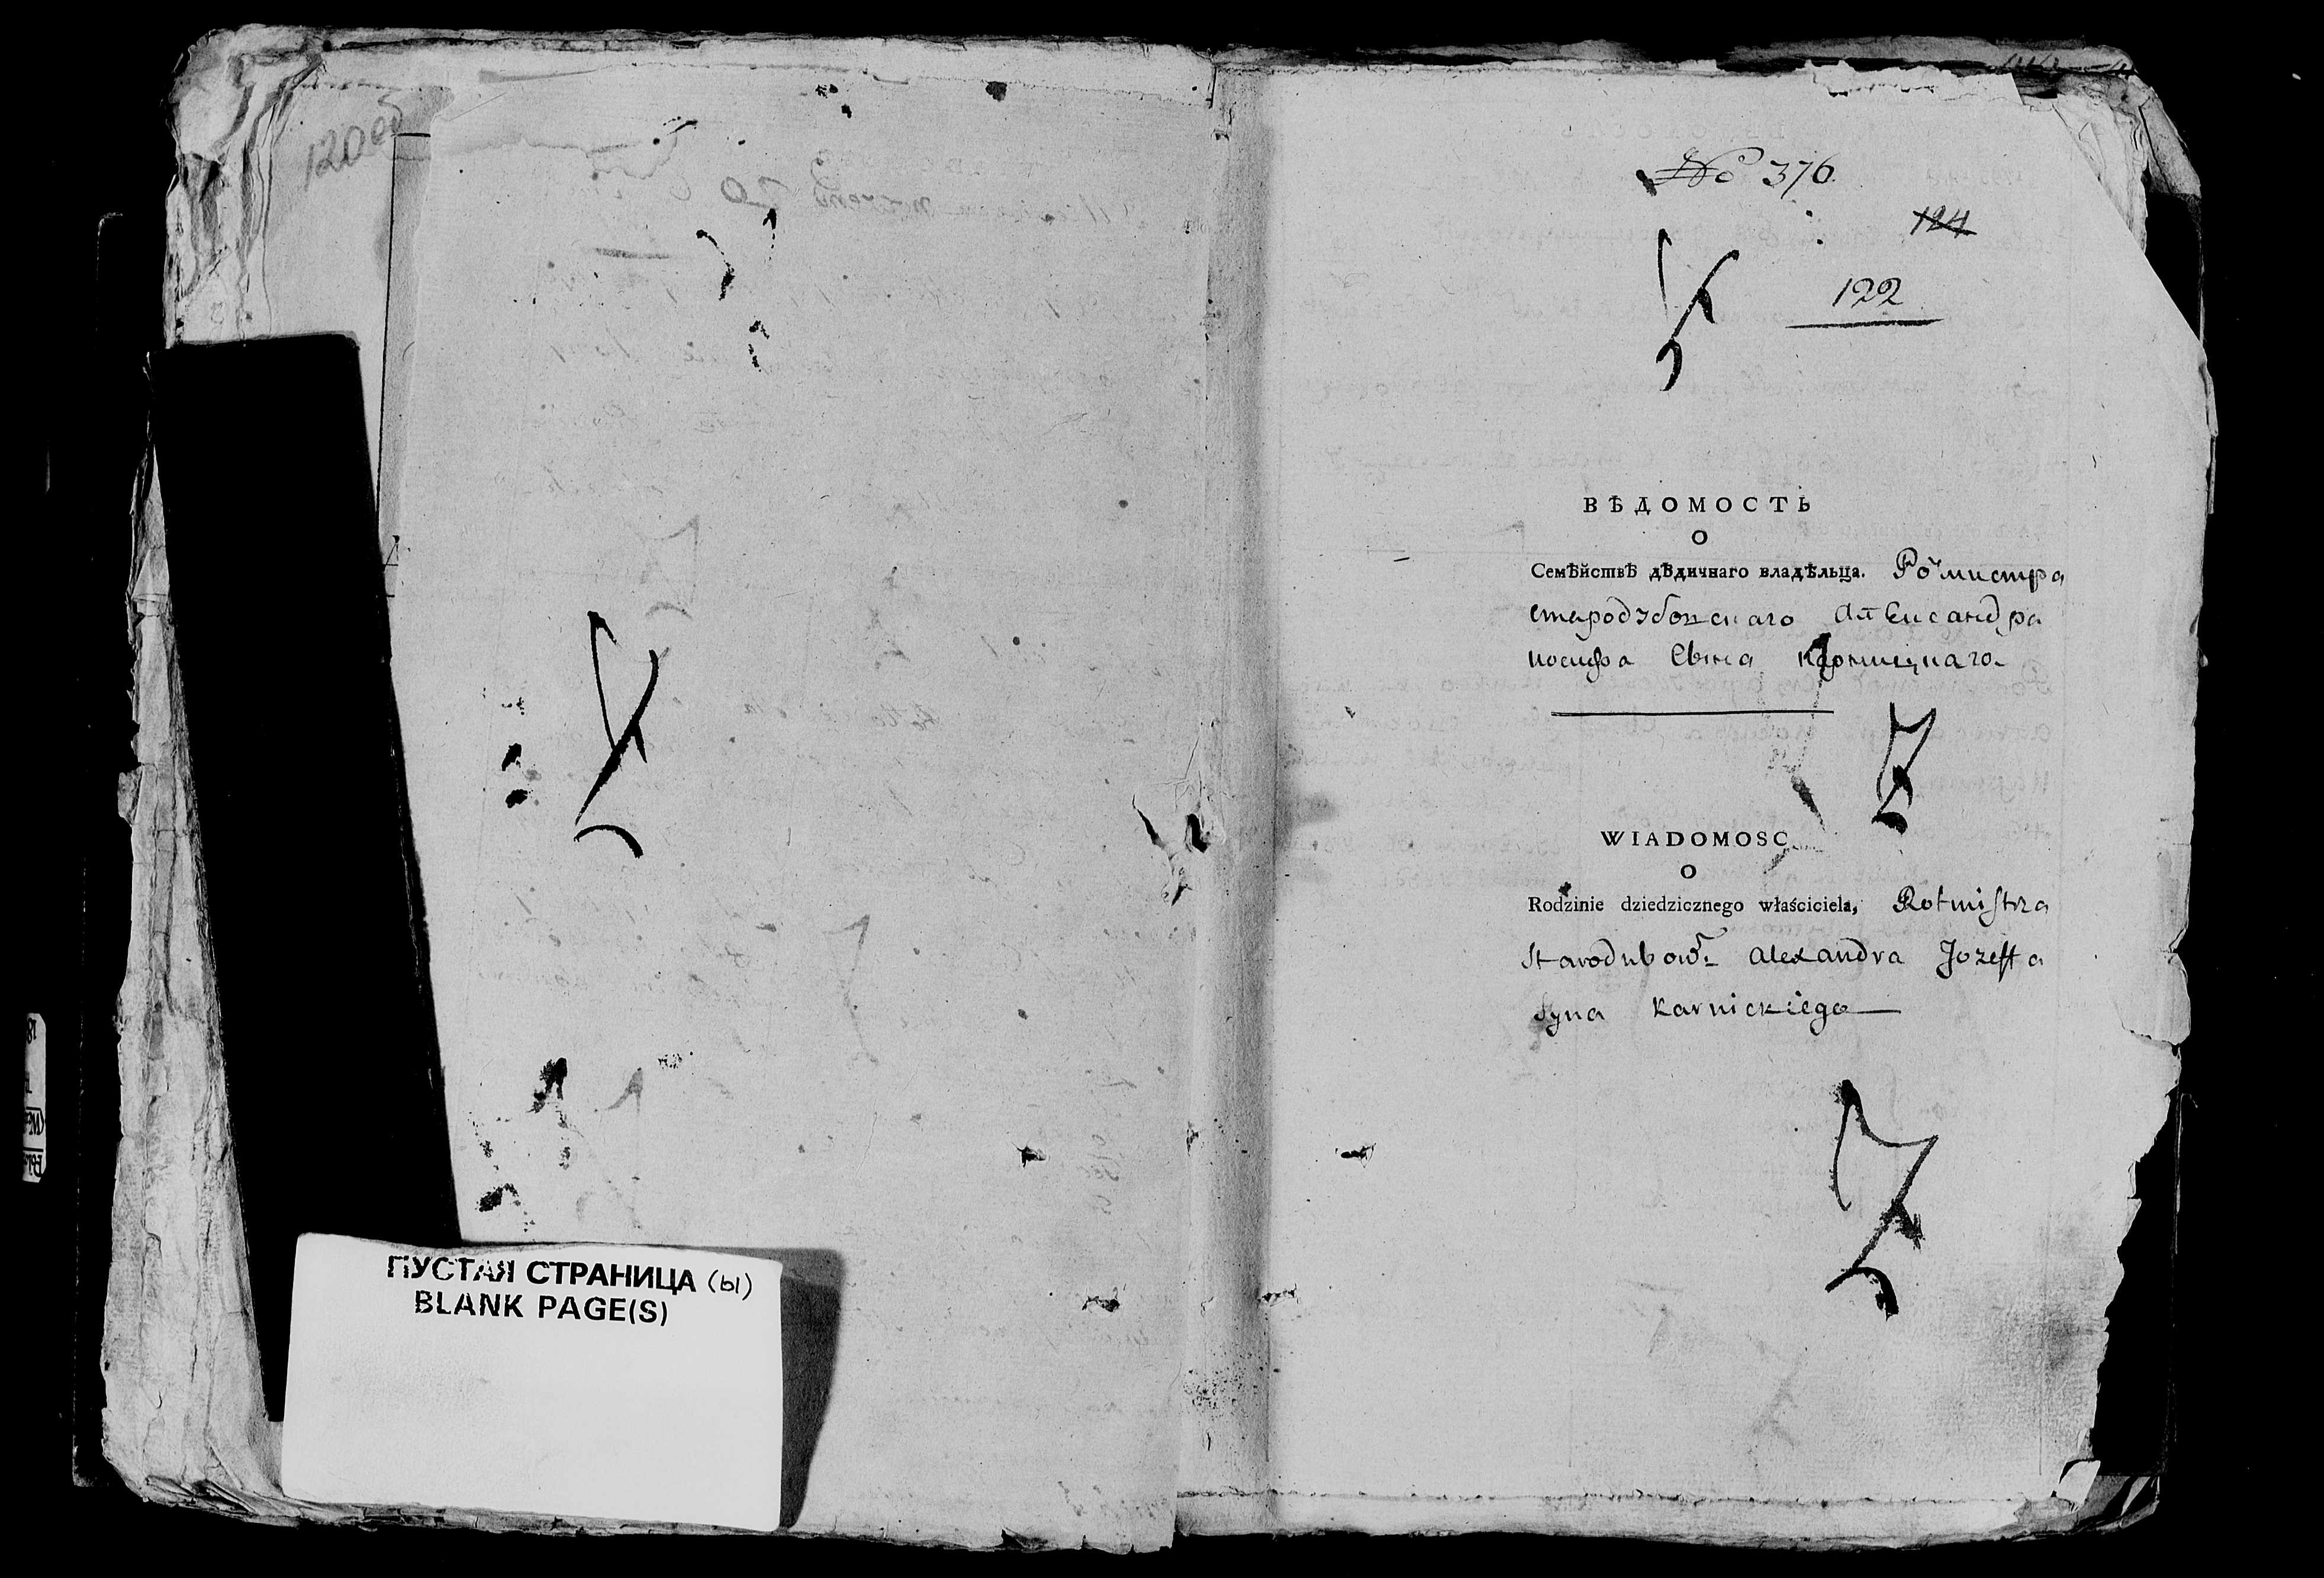 120об
ПУСТАЯ СТРАНИЦА (ы)
BLANK PAGE(S)
№ 376.
124
122
ВѢДОМОСТЬ
О
Семѣйствѣ дѣдичнаго владѣльца. Ромистра
стародубовскаго Александра
иосифа Сына Карницкаго
WIADOMOSC
O
Rodzinie dziedzicznego właściciela, Rotmistrza
Starodubow: Alexandra Jozeffa
Syna Karnickiego